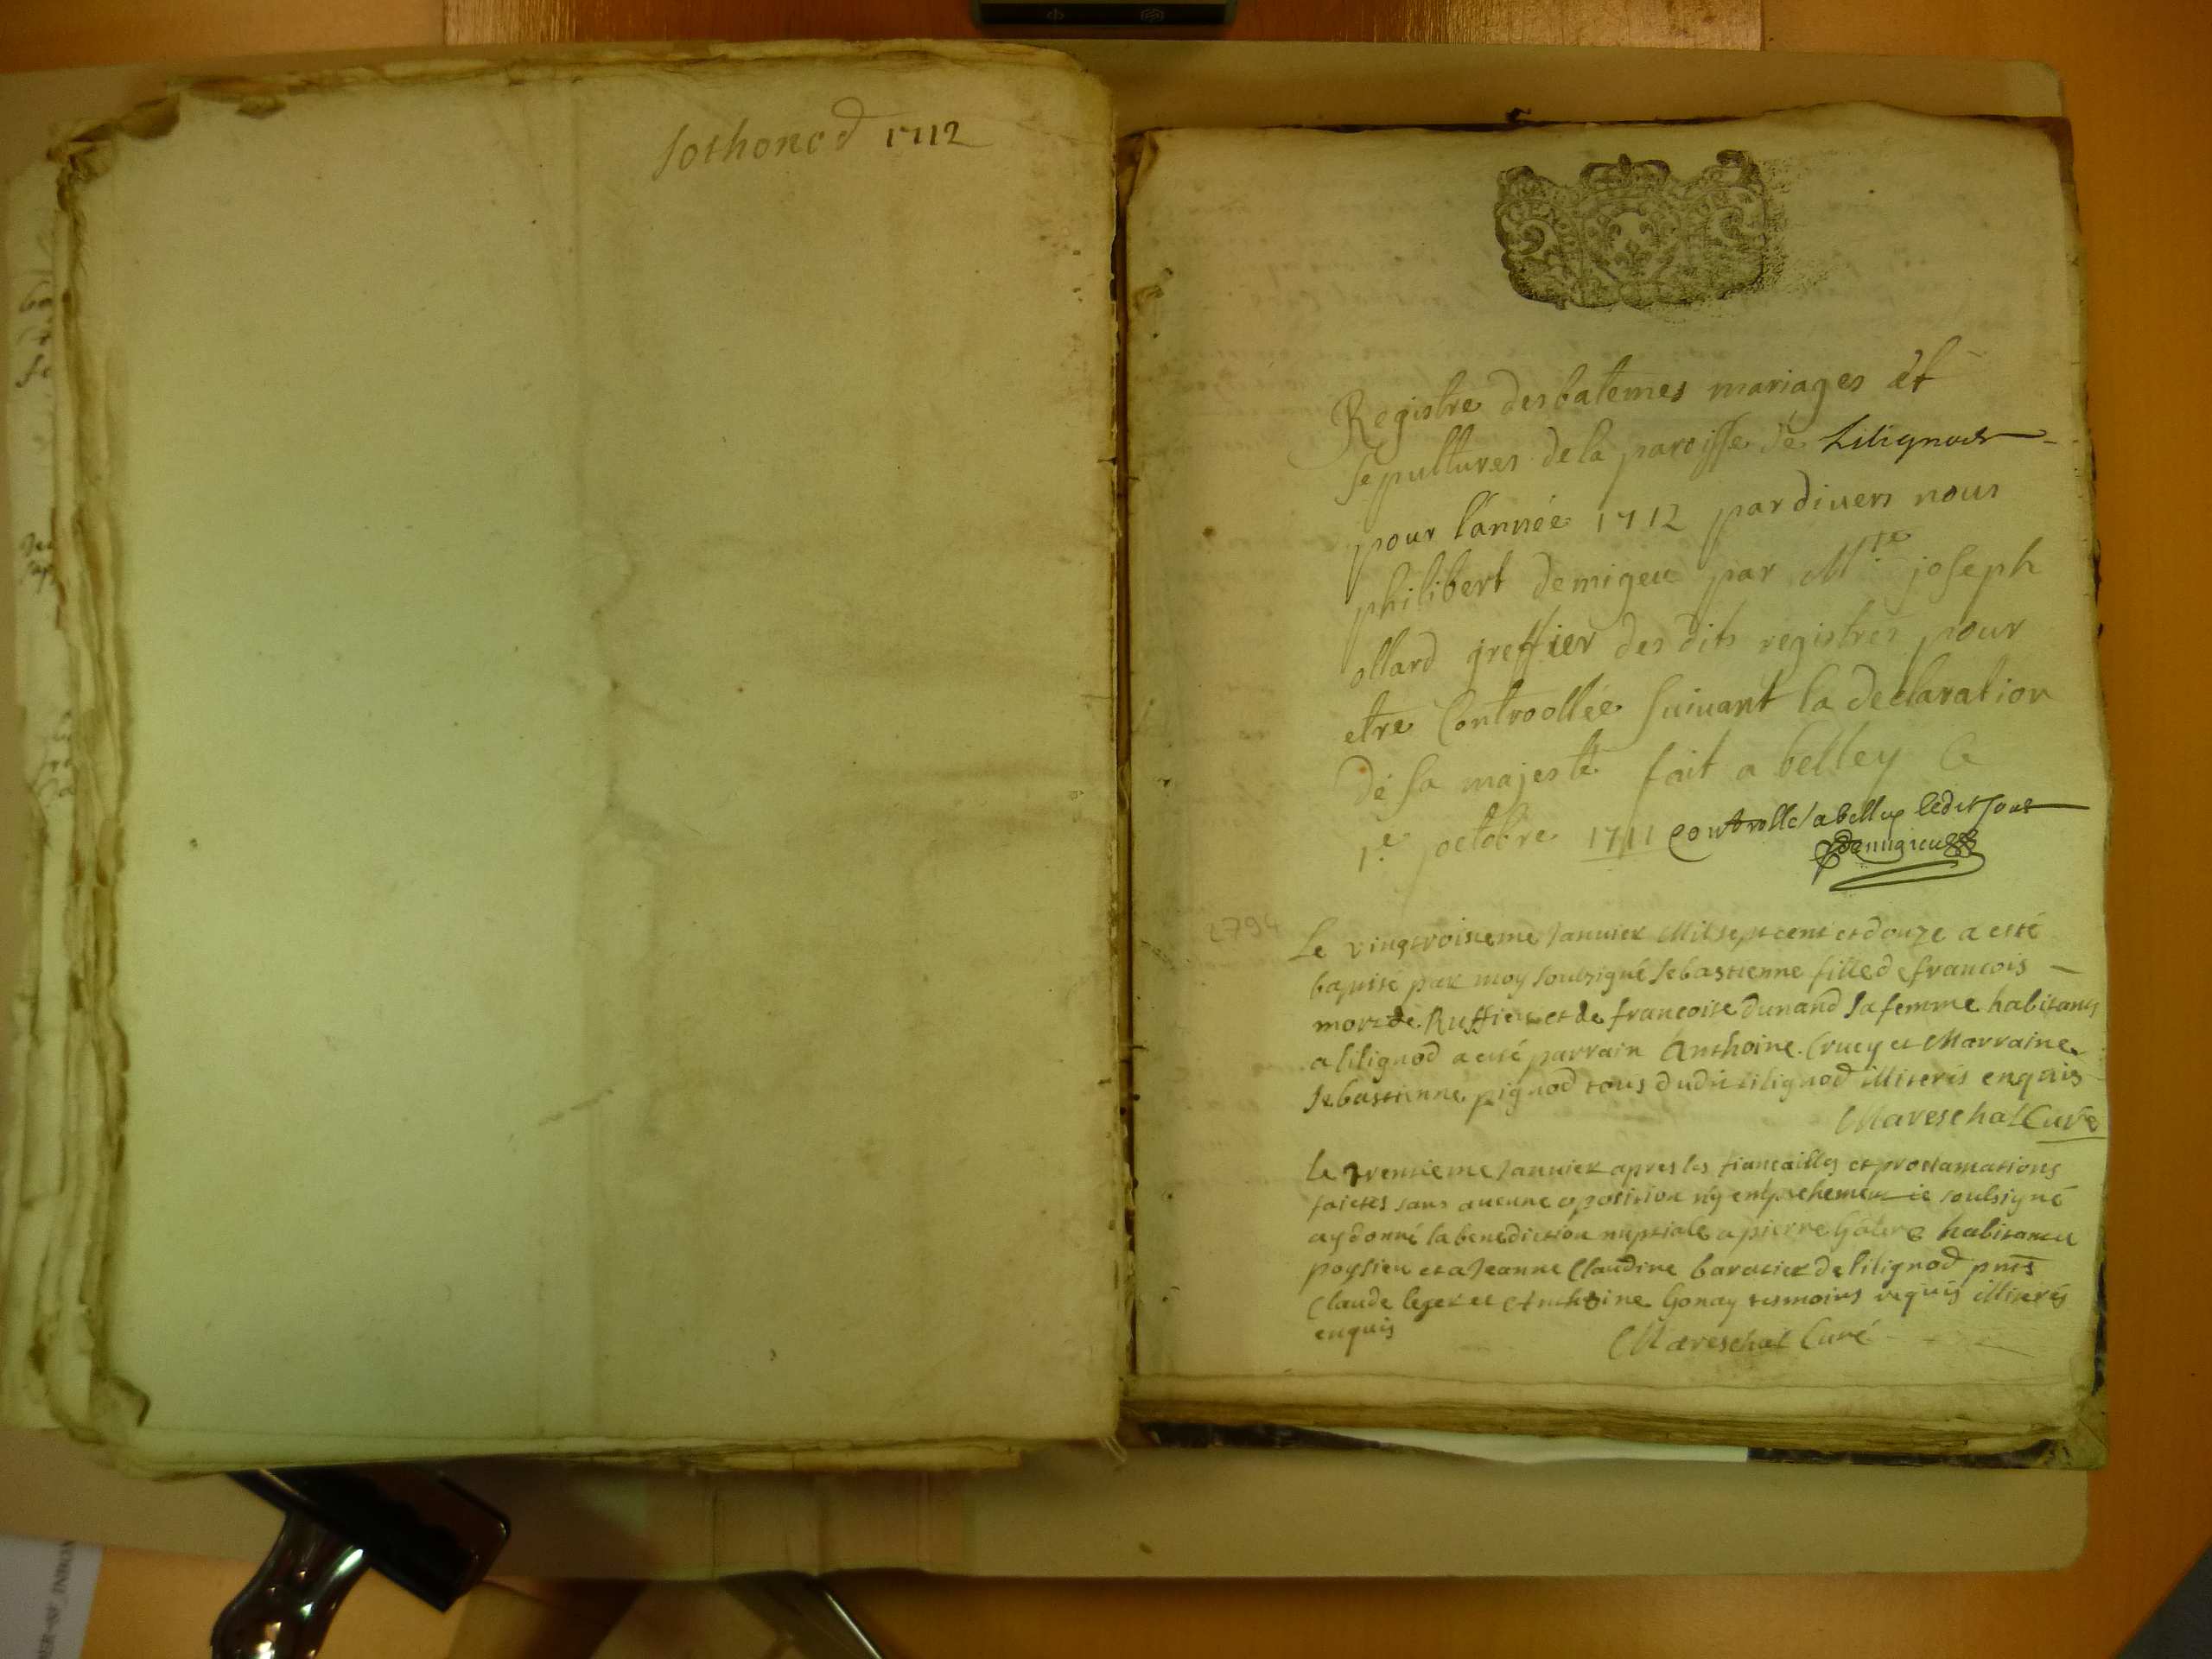 sothonod 1712
Registre des batemes mariages et
sepultures de la paroisse de Lilignod
pour l'année 1712 par divers nous
philibert demigeu par Mre joseph
ollard greffier des dits registres pour
etre Controollée suivant la declaration
de sa majesté fait a belley ce
1.e octobre 1711 Controllé a belley ledit jour
Demigieu
2794
Le vingtroisieme Janvier Mil sept cent et douze a esté
baptisé par moy soubsigné sebastienne fille de francois
de Ruffieu et de francoise Dunand sa femme habitants
a lilignod a esté parrain Anthoine Crucy et Marraine
sebastienne pignod tous dudit lilignod illiterés enquis
Mareschal Curé
le trentieme Janvier apres les fiancailles et proclamations
faictes sans aucune oposition ny empechement ie soubsigné
ay donné la benediction nuptiale a pierre habitant
poysieu et a Jeanne Claudine baratier de lilignod pnts
Claude leger et Anthoine Gonay tesmoins requis illiterés
enquis
Mareschal Curé